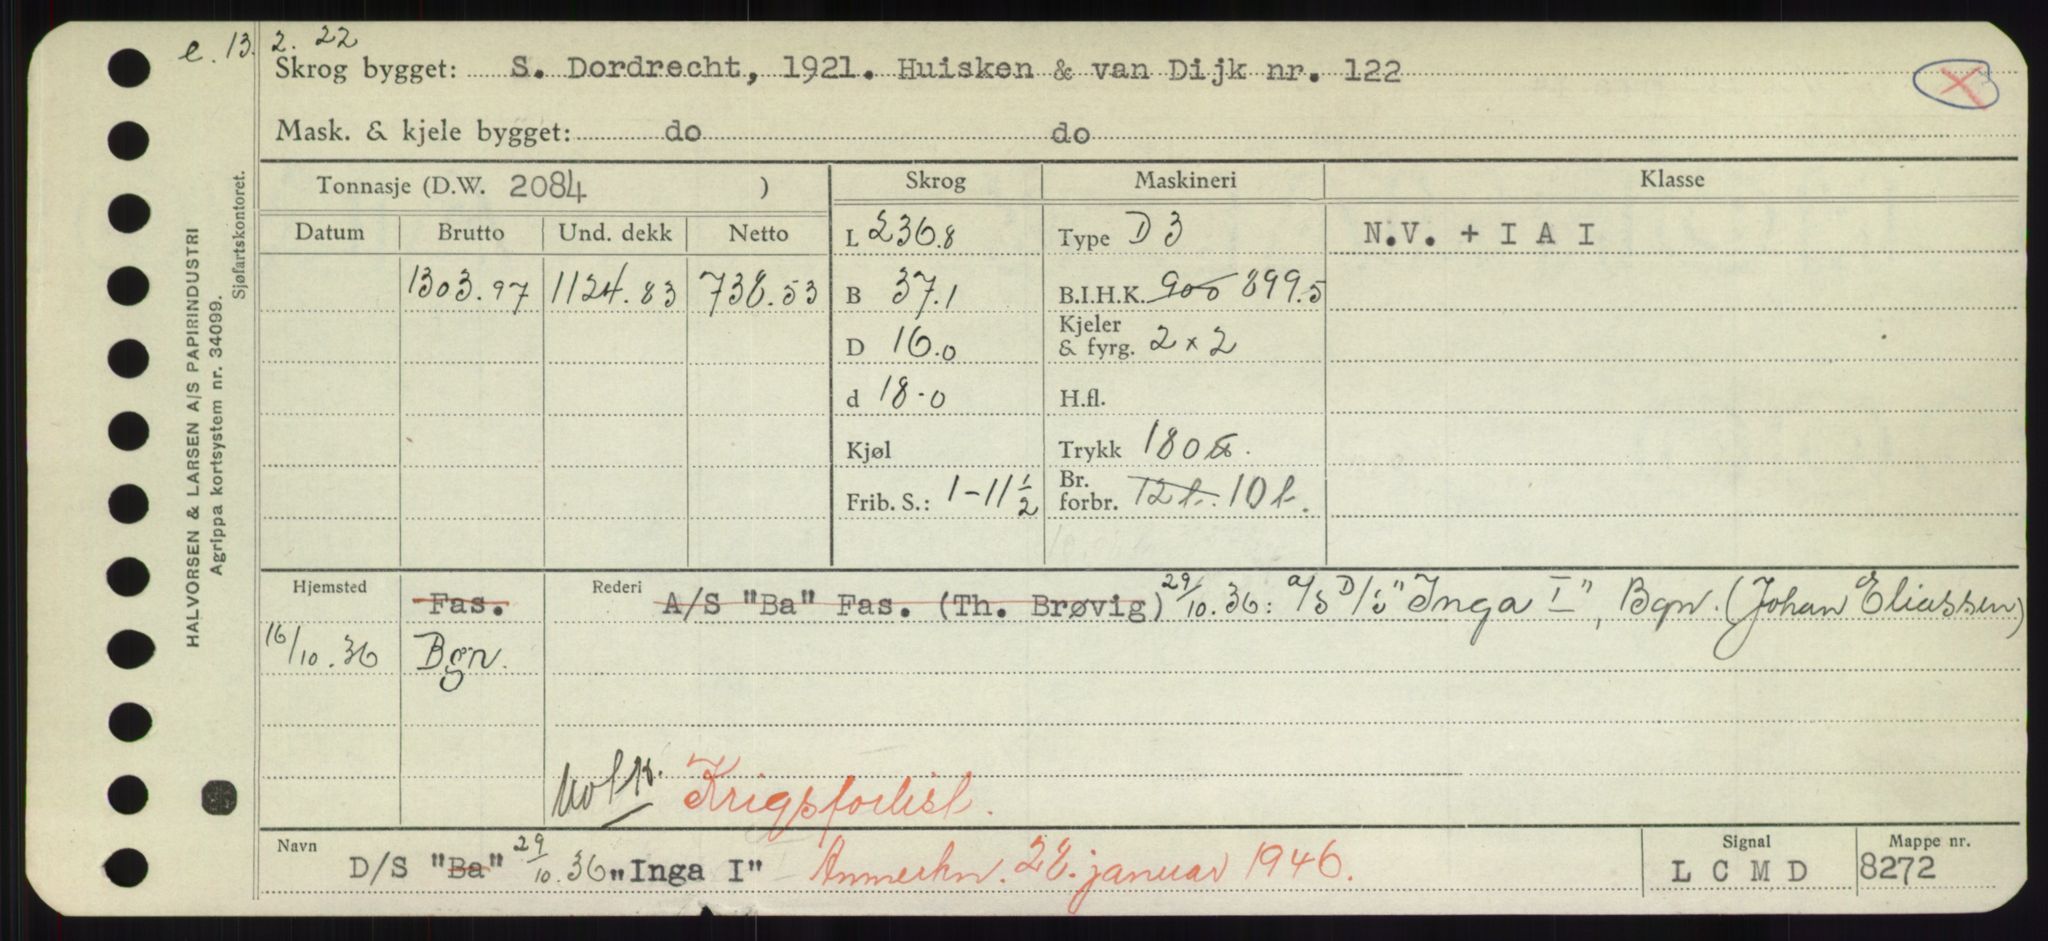 e. 13. 2. 22
Skrog bygget: S. Dordrecht, 1921. Huisken & van Dijk nr. 122
Mask. & kjele bygget: do do
HALVORSEN & LARSEN A/S PAPIRINDUSTRI
Agrippa kortsystem nr. 34099. Sjøfartskontoret.
Tonnasje (D.W. 2084 ) Skrog Maskineri Klasse
Datum Brutto Und. dekk Netto L 236.8 Type D 3 N.V. + I A I
1303.97 1124.83 738.53 B 37.1 B.I.H.K. 900 899.5
D 16.0 Kjeler & fyrg. 2 x 2
d 18.0 H.fl.
Kjøl Trykk 180
Frib. S.: 1-11 1/2 Br. forbr. 12 t. 10 t.
Hjemsted Fas. Rederi A/S "Ba" Fas. (Th. Brøvig) 29/10.36: A/S D/S "Inga I", Bgn. (Johan Eliassen)
16/10.36 Bgn.
Krigsforlist.
Navn D/S "Ba" 29/10.36 "Inga I" Anmerkn. 28. januar 1946. Signal L C M D Mappe nr. 8272